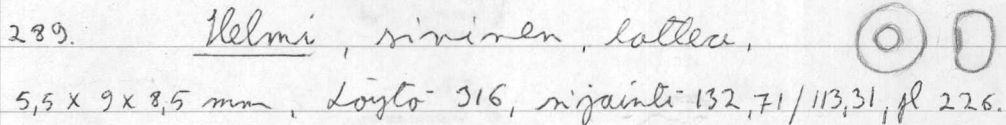 289. Helmi, sininen, lattea,
5,5 x 9 x 8,5 mm, Löytö 916, sijainti 132,71/113,31, pl 226.